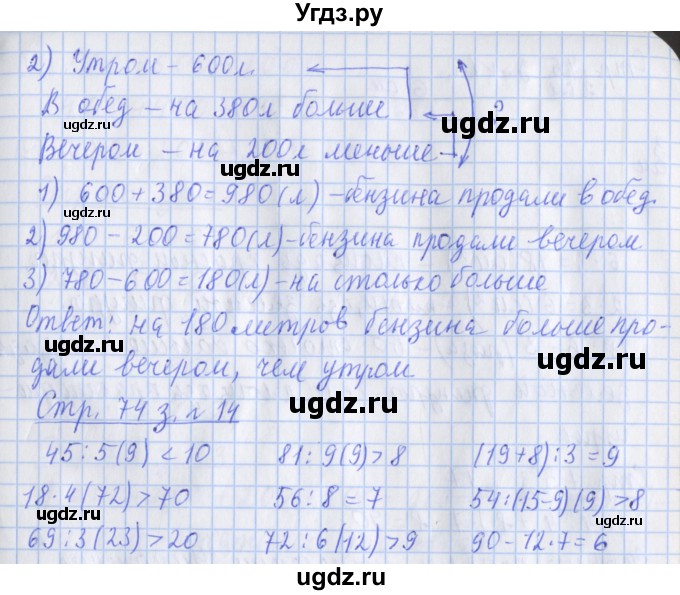 Угдз.ру
2) Утром - 600л.
В обед - на 380л больше ?
ugdz.ru ugdz.ru
Вечером - на 200л меньше
1) 600 + 380 = 980(л) - бензина продали в обед.
ugdz.ru ugdz.ru
2) 980 - 200 = 780(л) - бензина продали вечером
3) 780 - 600 = 180(л) - на столько больше
Ответ: на 180 литров бензина больше про-
ugdz.ru ugdz.ru
дали вечером, чем утром
ugdz.ru
Стр. 74 з. №14
45 : 5 (9) < 10 81 : 9 (9) > 8 (19+8) : 3 = 9
ugdz.ru
18 · 4 (72) > 70 56 : 8 = 7 54 : (15-9) (9) > 8
ugdz.ru ugdz.ru
69 : 3 (23) > 20 72 : 6 (12) > 9 90 - 12 · 7 = 6
ugdz.ru